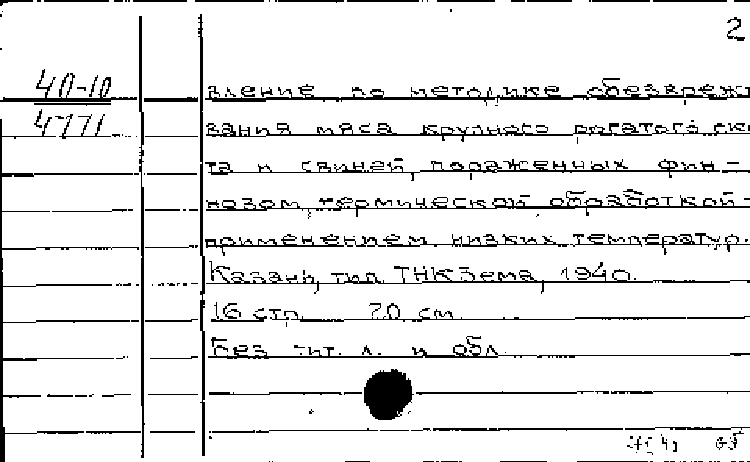 2
40-10
4771
вление по методике обезвреж
вания мяса крупного рогатого ско
та и свиней, пораженных фин-
нозом, термической обработкой -
применением низких температур.
Казань, тип. ТНКЗема, 1940.
16 стр. 20 см.
Без тит. л. и обл.